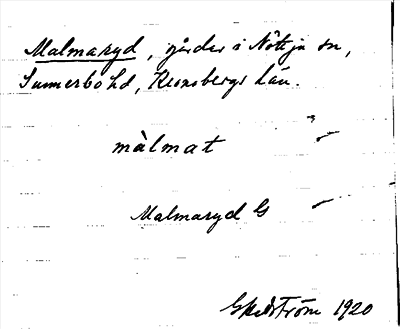 Malmaryd, gårdar i Nöteja sn,
Sunnerbo hd, Kronobergs län.
màlmat
Malmaryd G
1920